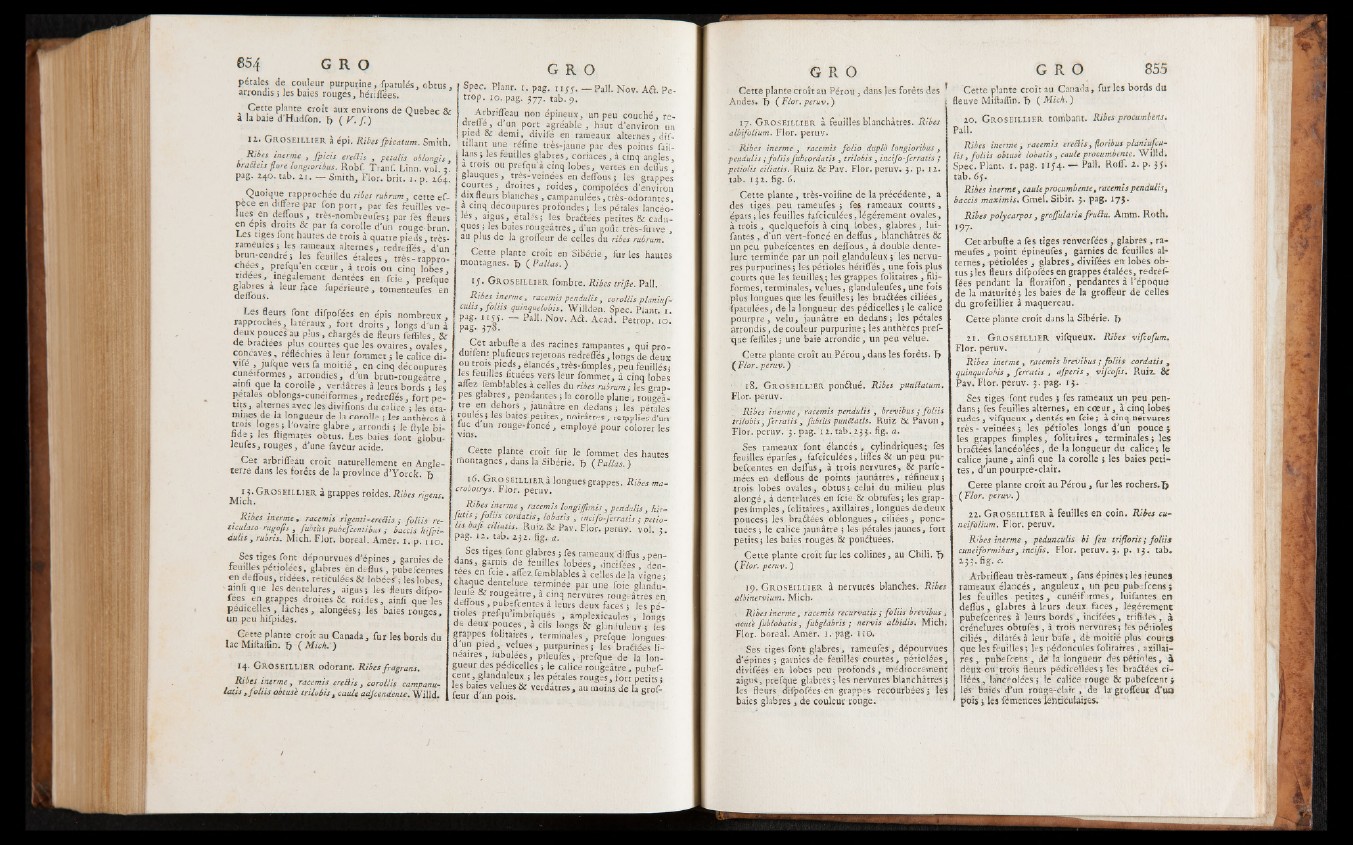 854 G R O
pétales de couleur purpurine, ſpatulés, obtus,
arrondis; les baies rouges, hériſſées.
Cette plante croît aux environs de Quebec &
à la baie d'Hudſon. ♄ ( V. ſ.)
12. GROSEILLIER à épi. Ribes ſpicatum. Smith.
Ribes inerme, ſpicis erectis, petalis oblongis,
bracteis flore longioribus. Robſ. Tranſ. Linn. vol. 3.
pag. 240. tab. 21. — Smith, Flor. brit. 1. p. 264.
Quoique rapprochée du ribes rubrum, cette eſ-
pèce en diffère par ſon port, par ſes feuilles ve-
lues en deſſous, très-nombreuſes; par ſes fleurs
en épis droits & par ſa corolle d'un rouge-brun.
Les tiges ſont hautes de trois à quatre pieds, très-
rameuſes; les rameaux alternes, redreſſés, d'un
brun-cendré; les feuilles étalées, très-rappro-
chées, preſqu'en cœur, à trois ou cinq lobes,
ridées, inégalement dentées en ſcie, preſque
glabres à leur face ſupérieure, tomenteuſes en
deſſous.
Les fleurs ſont diſpoſées en épis nombreux,
rapprochés, latéraux, fort droits, longs d'un à
deux pouces au plus, chargés de fleurs ſeſſiles, &
de bractées plus courtes que les ovaires, ovales,
concaves, réfléchies à leur ſommet; le calice di-
viſé, juſque vers ſa moitié, en cinq découpures
cunéiformes, arrondies, d'un brun-rougeâtre,
ainſi que la corolle, verdâtres à leurs bords; les
pétales oblongs-cunéiformes, redreſſés, fort pe-
tits, alternes avec les diviſions du calice; les éta-
mines de la longueur de la corolle; les anthères à
trois loges; l'ovaire glabre, arrondi; le ſtyle bi-
fide; les ſtigmates obtus. Les baies ſont globu-
leuſes, rouges, d'une ſaveur acide.
Cet arbriſſeau croît naturellement en Angle-
terre dans les forêts de la province d'Yorck. ♄
13. GROSEILLIER à grappes roides. Ribes rigens.
Mich.
Ribes inerme, racemis rigenti-erectis; foliis re-
ticulato-rugoſis, ſubtùs pubeſcentibus; baccis hiſpi-
dulis, rubris. Mich. Flor. boreal. Amer. 1. p. 110.
Ses tiges ſont dépourvues d'épines, garnies de
feuilles pétiolées, glabres en deſſus, pubeſcentes
en deſſous, ridées, réticulées & lobées; les lobes,
ainſi que les dentelures, aigus; les fleurs diſpo-
ſées en grappes droites & roides, ainſi que les
pédicelles, lâches, alongées; les baies rouges,
un peu hiſpides.
Cette plante croît au Canada, ſur les bords du
lac Miſtaſſin. ♄ ( Mich. )
14. GROSEILLIER odorant. Ribes fragrans.
Ribes inerme, racemis erectis, corollis campanu-
latis, foliis obtusè trilobis, caule adſcendente. Willd.
G R O
Spec. Plant. 1. pag. 1155. — Pall. Nov. Act. Pe-
trop. 10. pag. 377. tab. 9.
Arbriſſeau non épineux, un peu couché, re-
dreſſé, d'un port agréable, haut d'environ un
pied & demi, diviſé en rameaux alternes, diſ-
tillant une réſine très-jaune par des points ſail-
lans; les feuilles glabres, coriaces, à cinq angles,
à trois ou preſqu'à cinq lobes, vertes en deſſus,
glauques, très-veinées en deſſous; les grappes
courtes, droites, roides, compoſées d'environ
dix fleurs blanches, campanulées, très-odorantes,
à cinq découpures profondes; les pétales lancéo-
lés, aigus, étalés; les bractées petites & cadu-
ques; les baies rougeâtres, d'un goût très-ſuave,
au plus de la groſſeur de celles du ribes rubrum.
Cette plante croît en Sibérie, ſur les hautes
montagnes. ♄ ( Pallas. )
15. GROSEILLIER ſombre. Ribes triſte. Pall.
Ribes inerme, racemis pendulis, corollis planiuſ-
culis, foliis quinquelobis. Willden. Spec. Plant. 1.
pag. 1155. — Pall. Nov. Act. Acad. Petrop. 10.
pag. 378.
Cet arbuſte a des racines rampantes, qui pro-
duiſent pluſieurs rejetons redreſſés, longs de deux
ou trois pieds, élancés, très-ſimples, peu feuillés;
les feuilles ſituées vers leur ſommet, à cinq lobes
aſſez ſemblables à celles du ribes rubrum; les grap-
pes glabres, pendantes; la corolle plane, rougeâ-
tre en dehors, jaunâtre en dedans; les pétales
roulés; les baies petites, noirâtres, remplies d'un
ſuc d'un rouge-foncé, employé pour colorer les
vins.
Cette plante croît ſur le ſommet des hautes
montagnes, dans la Sibérie. ♄ ( Pallas. )
16. GROSEILLIER à longues grappes. Ribes ma-
crobotrys. Flor. peruv.
Ribes inerme, racemis longiſſimis, pendulis, hir-
ſutis; foliis cordatis, lobatis, inciſo-ſerratis; petio-
lis baſi ciliatis. Ruiz & Pav. Flor. peruv. vol. 3.
pag. 12. tab. 232. fig. a.
Ses tiges ſont glabres; ſes rameaux diffus, pen-
dans, garnis de feuilles lobées, inciſées, den-
tées en ſcie, aſſez ſemblables à celles de la vigne;
chaque dentelure terminée par une ſoie glandu-
leuſe & rougeâtre, à cinq nervures rougeâtres en
deſſous, pubeſcentes à leurs deux faces; les pé-
tioles preſqu'imbriqués, amplexicaules, longs
de deux pouces, à cils longs & glanduleux; les
grappes ſolitaires, terminales, preſque longues
d'un pied, velues, purpurines; les bractées li-
néaires, ſubulées, pileuſes, preſque de la lon-
gueur des pédicelles; le calice rougeâtre, pubeſ-
cent, glanduleux; les pétales rouges, fort petits;
les baies velues & verdâtres, au moins de la groſ-
ſeur d'un pois.
G R O
Cette plante croît au Pérou, dans les forêts des
Andes. ♄ ( Flor. peruv. )
17. GROSEILLIER à feuilles blanchâtres. Ribes
albifolium. Flor. peruv.
Ribes inerme, racemis folio duplò longioribus,
pendulis; foliis ſubcordatis, trilobis, inciſo-ſerratis;
petiolis ciliatis. Ruiz & Pav. Flor. peruv. 3. p. 12.
tab. 232. fig. 6.
Cette plante, très-voiſine de la précédente, a
des tiges peu rameuſes; ſes rameaux courts,
épars; les feuilles faſciculées, légérement ovales,
à trois, quelquefois à cinq lobes, glabres, lui-
ſantes, d'un vert-foncé en deſſus, blanchâtres &
un peu pubeſcentes en deſſous, à double dente-
lure terminée par un poil glanduleux; les nervu-
res purpurines; les pétioles hériſſés, une fois plus
courts que les feuilles; les grappes ſolitaires, fili-
formes, terminales, velues, glanduleuſes, une fois
plus longues que les feuilles; les bractées ciliées,
ſpatulées, de la longueur des pédicelles; le calice
pourpre, velu, jaunâtre en dedans; les pétales
arrondis, de couleur purpurine; les anthères preſ-
que ſeſſiles; une baie arrondie, un peu velue.
Cette plante croît au Pérou, dans les forêts. ♄
( Flor. peruv. )
18. GROSEILLIER ponctué. Ribes punctatum.
Flor. peruv.
Ribes inerme, racemis pendulis, brevibus; foliis
trilobis, ſerratis, ſubtùs punctatis. Ruiz & Pavon,
Flor. peruv. 3. pag. 12. tab. 233. fig. a.
Ses rameaux ſont élancés, cylindriques; ſes
feuilles éparſes, faſciculées, liſſes & un peu pu-
beſcentes en deſſus, à trois nervures, & parſe-
mées en deſſous de points jaunâtres, réſineux;
trois lobes ovales, obtus; celui du milieu plus
alongé, à dentelures en ſcie & obtuſes; les grap-
pes ſimples, ſolitaires, axillaires, longues de deux
pouces; les bractées oblongues, ciliées, ponc-
tuées; le calice jaunâtre; les pétales jaunes, fort
petits; les baies rouges & ponctuées.
Cette plante croît ſur les collines, au Chili. ♄
( Flor. peruv. )
19. GROSEILLIER à nervures blanches. Ribes
albinervium. Mich.
Ribes inerme, racemis recurvatis; foliis brevibus,
acutè ſublobatis, ſubglabris; nervis albidis. Mich.
Flor. boreal. Amer. 1. pag. 110.
Ses tiges ſont glabres, rameuſes, dépourvues
d'épines; garnies de feuilles courtes, pétiolées,
diviſées en lobes peu profonds, médiocrement
aigus, preſque glabres; les nervures blanchâtres;
les fleurs diſpoſées en grappes recourbées; les
baies glabres, de couleur rouge.
G R O 855
Cette plante croît au Canada, ſur les bords du
fleuve Miſtaſſin. ♄ ( Mich. )
20. GROSEILLIER tombant. Ribes procumbens.
Pall.
Ribes inerme, racemis erectis, floribus planiuſcu-
lis, foliis obtusè lobatis, caule procumbente. Willd.
Spec. Plant. 1. pag. 1154. — Pall. Roſſ. 2. p. 35.
tab. 65.
Ribes inerme, caule procumbente, racemis pendulis,
baccis maximis. Gmel. Sibir. 3. pag. 173.
Ribes polycarpos, groſſulariæ fructu. Amm. Roth.
197.
Cet arbuſte a ſes tiges renverſées, glabres, ra-
meuſes, point épineuſes, garnies de feuilles al-
ternes, pétiolées, glabres, diviſées en lobes ob-
tus; les fleurs diſpoſées en grappes étalées, redreſ-
ſées pendant la floraiſon, pendantes à l'époque
de la maturité; les baies de la groſſeur de celles
du groſeillier à maquereau.
Cette plante croît dans la Sibérie. ♄
21. GROSEILLIER viſqueux. Ribes viſcoſum.
Flor. peruv.
Ribes inerme, racemis brevibus; foliis cordatis,
quinquelobis, ſerratis, aſperis, viſcoſis. Ruiz. &
Pav. Flor. peruv. 3. pag. 13.
Ses tiges ſont rudes; ſes rameaux un peu pen-
dans; ſes feuilles alternes, en cœur, à cinq lobes
rudes, viſqueux, dentés en ſcie; à cinq nervures
très-veinées; les pétioles longs d'un pouce;
les grappes ſimples, ſolitaires, terminales; les
bractées lancéolées, de la longueur du calice; le
calice jaune, ainſi que la corolle; les baies peti-
tes, d'un pourpre-clair.
Cette plante croît au Pérou, ſur les rochers. ♄
( Flor. peruv. )
22. GROSEILLIER à feuilles en coin. Ribes cu-
neifolium. Flor. peruv.
Ribes inerme, pedunculis bi ſeu trifloris; foliis
cuneiformibus, inciſis. Flor. peruv. 3. p. 13. tab.
233. fig. c.
Arbriſſeau très-rameux, ſans épines; les jeunes
rameaux élancés, anguleux, un peu pubeſcens;
les feuilles petites, cunéiformes, luiſantes en
deſſus, glabres à leurs deux faces, légérement
pubeſcentes à leurs bords, inciſées, trifides, à
crénelures obtuſes, à trois nervures; les pétioles
ciliés, dilatés à leur baſe, de moitié plus courts
que les feuilles; les pédoncules ſolitaires, axillai-
res, pubeſcens, de la longueur des pétioles, à
deux ou trois fleurs pédicellées; les bractées ci-
liées, lancéolées; le calice rouge & pubeſcent;
les baies d'un rouge-clair, de la groſſeur d'un
pois; les ſemences lenticulaires.